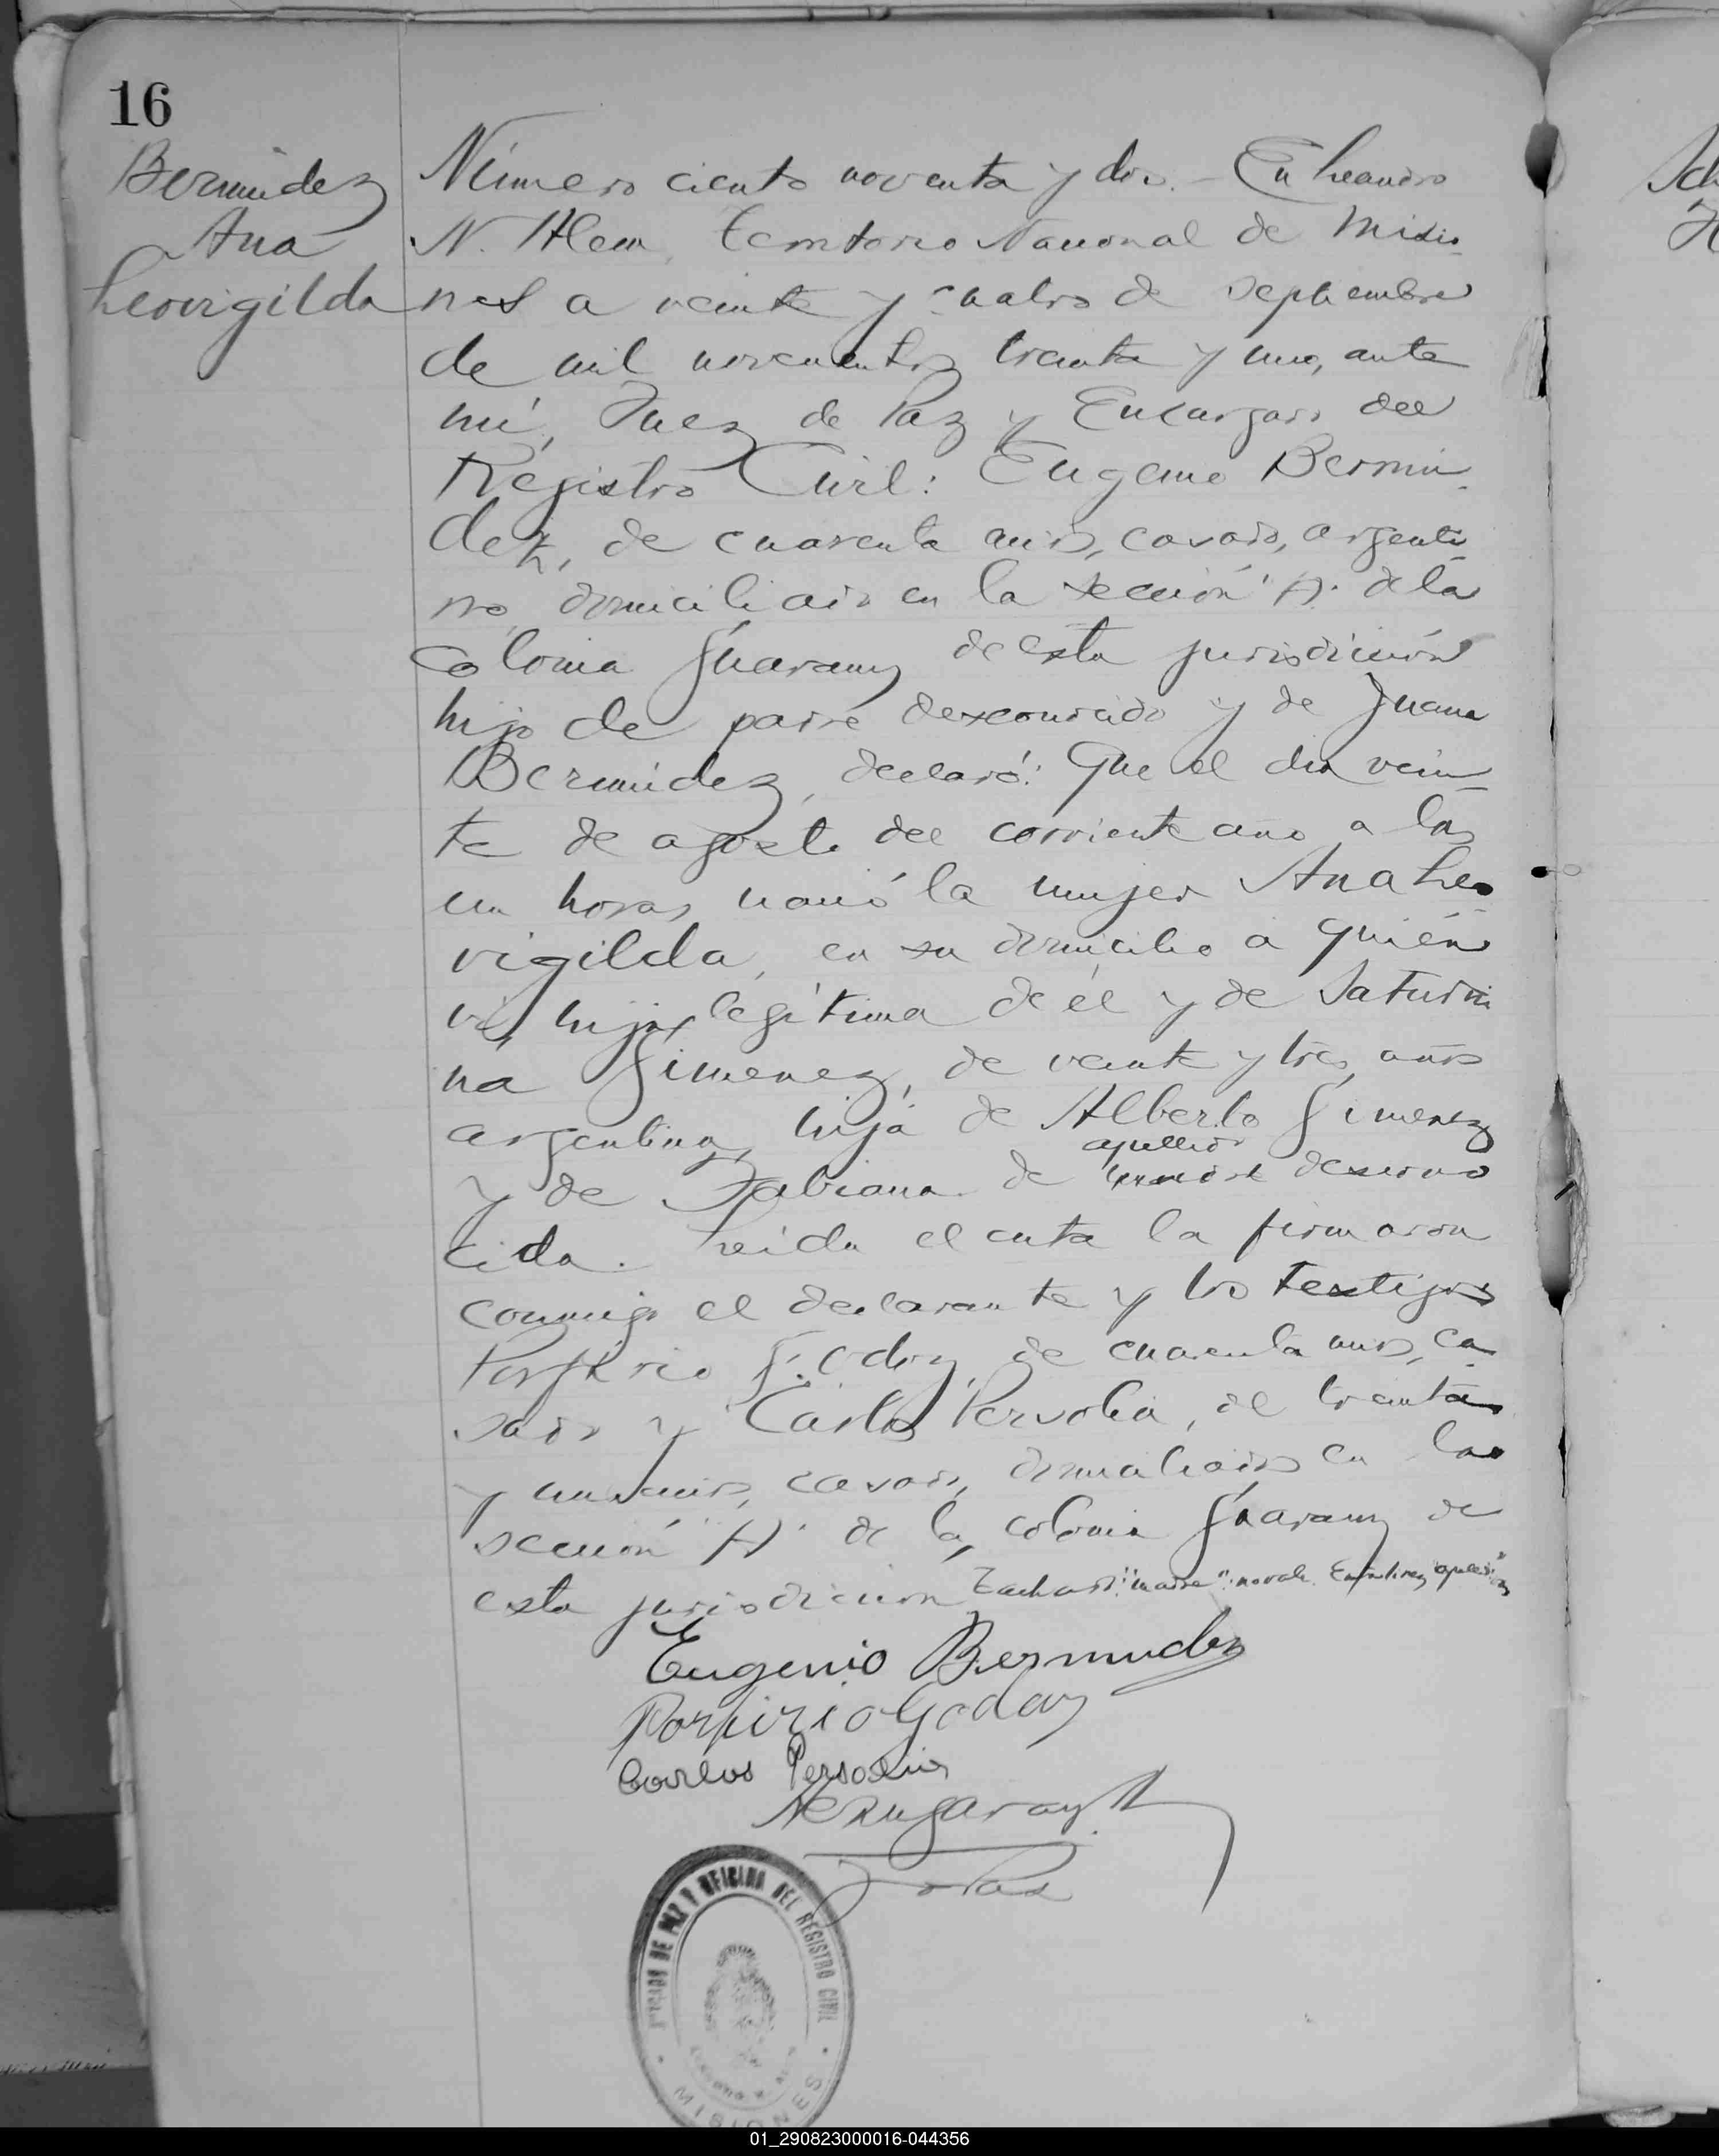 16
Bermúdez
Ana
Leovigilda
Número ciento noventa y dos. - En Leandro
N. Alem, Territorio Nacional de Misio-
nes a veinte y cuatro de septiembre
de mil novecientos treinta y uno, ante
mí, Juez de Paz y Encargado del
Registro Civil: Eugenio Bermú-
dez, de cuarenta años, casado, argenti-
no, domiciliado en la sección "A" de la
Colonia Guarany de esta jurisdicción
hijo de padre desconocido y de Juana
Bermúdez, declaró: Que el día vein-
te de agosto del corriente año a las
un horas nació la mujer Ana Leo-
vigilda, en su domicilio a quién
vi, hija legítima de él y de Saturni
na Gimenez, de veinte y tres años
argentina, hija de Alberto Gimenez
apellido
y de Fabiana de madre descono
cida. Leida el acta la firmaron
conmigo el declarante y los testigos
Porfirio Godoy, de cuarenta años, ca-
sado y Carlos Persolia, de treinta
y un años, casado, domiciliados en la
sección "A" de la colonia Guarany de
esta jurisdicción Tachado: "madre": no vale. Entrelineas "apellido"
Eugenio Bermudez
Porfirio Godoy
Carlos Persolia
J. de Paz
JUZGADO DE PAZ Y OFICINA DEL REGISTRO CIVIL
MISIONES
Sch
01_290823000016-044356